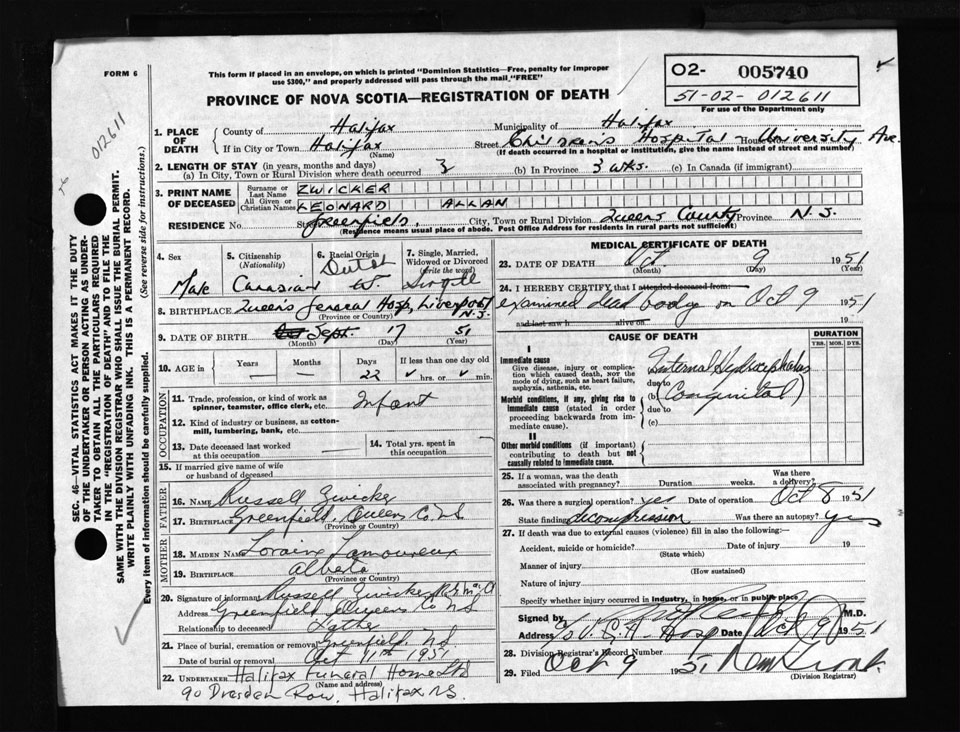 FORM 6
This form if placed in an envelope, on which is printed "Dominion Statistics—Free, penalty for improper
use $300," and properly addressed will pass through the mail "FREE"
PROVINCE OF NOVA SCOTIA—REGISTRATION OF DEATH
02- 005740
51-02-012611
For use of the Department only
012611
SEC. 46—VITAL STATISTICS ACT MAKES IT THE DUTY
OF THE UNDERTAKER OR PERSON ACTING AS UNDER-
TAKER TO OBTAIN ALL THE PARTICULARS REQUIRED
IN THE "REGISTRATION OF DEATH" AND TO FILE THE
SAME WITH THE DIVISION REGISTRAR WHO SHALL ISSUE THE BURIAL PERMIT.
WRITE PLAINLY WITH UNFADING INK. THIS IS A PERMANENT RECORD.
Every item of information should be carefully supplied. (See reverse side for instructions.)
1. PLACE OF DEATH County of Halifax Municipality of Halifax
If in City or Town Halifax Street Children's Hospital House No. University Ave.
(Name) (If death occurred in a hospital or institution, give the name instead of street and number)
2. LENGTH OF STAY (in years, months and days)
(a) In City, Town or Rural Division where death occurred 3 (b) In Province 3 wks. (c) In Canada (if immigrant)
3. PRINT NAME OF DECEASED Surname or Last Name ZWICKER
All Given or Christian Names LEONARD ALLAN
RESIDENCE No. St. Greenfield, City, Town or Rural Division Queens County Province N.S.
(Residence means usual place of abode. Post Office Address for residents in rural parts not sufficient)
4. Sex Male
5. Citizenship (Nationality) Canadian
6. Racial Origin Dutch W.
7. Single, Married, Widowed or Divorced (write the word) Single
8. BIRTHPLACE Queen's General Hosp, Liverpool N.S.
(Province or Country)
9. DATE OF BIRTH Oct Sept. 17 51
(Month) (Day) (Year)
10. AGE in Years — Months — Days 22 If less than one day old hrs. or min.
OCCUPATION
11. Trade, profession, or kind of work as
spinner, teamster, office clerk, etc. Infant
12. Kind of industry or business, as cotton-
mill, lumbering, bank, etc.
13. Date deceased last worked at this occupation
14. Total yrs. spent in this occupation
15. If married give name of wife
or husband of deceased
FATHER
16. NAME Russell Zwicker
17. BIRTHPLACE Greenfield, Queens Co. N.S
(Province or Country)
MOTHER
18. MAIDEN NAME Loraine Lamoureux
19. BIRTHPLACE Alberta
(Province or Country)
20. Signature of informant Russell Zwicker
Address Greenfield Queens Co NS
Relationship to deceased Father
21. Place of burial, cremation or removal Greenfield, NS
Date of burial or removal Oct 11th 1951
22. UNDERTAKER Halifax Funeral Home Ltd
(Name and Address)
90 Dresden Row, Halifax N.S.
MEDICAL CERTIFICATE OF DEATH
23. DATE OF DEATH Oct 9 1951
(Month) (Day) (Year)
24. I HEREBY CERTIFY that I attended deceased from:
examined dead body on Oct 9 1951
and last saw h alive on 19
CAUSE OF DEATH DURATION
YRS. MOS. DYS.
I
Immediate cause
Give disease, injury or complica-
tion which caused death, not the
mode of dying, such as heart failure,
asphyxia, asthenia, etc.
Internal Hydrocephalus
due to
Morbid conditions, if any, giving rise to
immediate cause (stated in order
proceeding backwards from im-
mediate cause).
(b) (Congenital)
due to
(c)
II
Other morbid conditions (if important)
contributing to death but not
causally related to immediate cause.
25. If a woman, was the death
associated with pregnancy? Duration weeks. Was there a delivery?
26. Was there a surgical operation? yes Date of operation Oct 8 1951
State finding decompression Was there an autopsy? yes
27. If death was due to external causes (violence) fill in also the following:—
Accident, suicide or homicide? Date of injury 19
(State which)
Manner of injury
(How sustained)
Nature of injury
Specify whether injury occurred in industry, in home, or in public place
Signed by M.D.
Address Hosp Date Oct 9 1951
28. Division Registrar's Record Number
29. Filed Oct 9 1951
(Division Registrar)